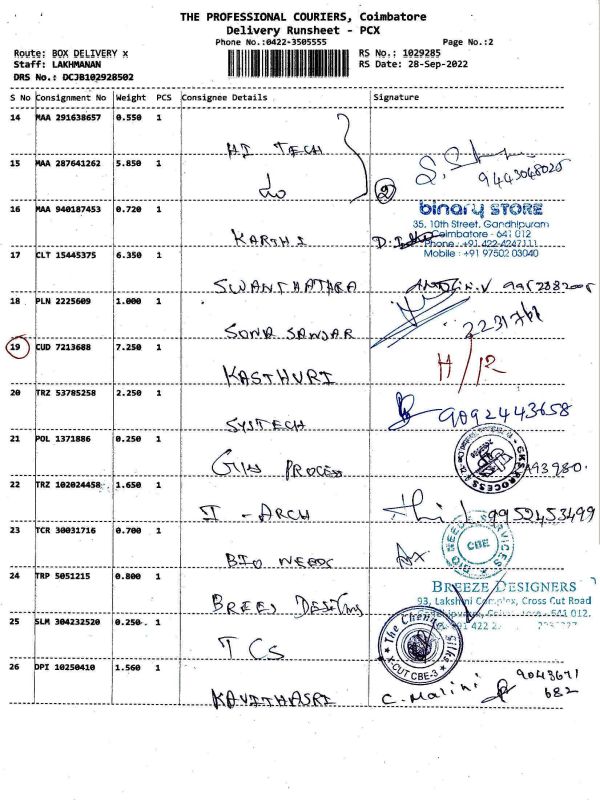 THE PROFESSIONAL COURIERS, Coimbatore
Delivery Runsheet - PCX
Phone No.:0422-3505555 Page No.:2
Route: BOX DELIVERY x RS No.: 1029285
Staff: LAKHMANAN RS Date: 28-Sep-2022
DRS No.: DCJB102928502
S No Consignment No Weight PCS Consignee Details Signature
14 MAA 291638657 0.550 1
HI TECH
15 MAA 287641262 5.850 1
2 9443048025
16 MAA 940187453 0.720 1
binary STORE
35, 10th Street, Gandhipuram
Coimbatore - 641 012
Phone : +91 422-4247111
Mobile : +91 97502 03040
KARTHI
17 CLT 15445375 6.350 1
SWANTHATHRA
18 PLN 2225609 1.000 1
SONA SANDAR
19 CUD 7213688 7.250 1
KASTHURI H/R
20 TRZ 53785258 2.250 1
SYSTECH 9092443658
21 POL 1371886 0.250 1
PROCESS
22 TRZ 102024458 1.650 1
I - ARCH 9952453499
23 TCR 30031716 0.700 1
BIO NEEDS
BIO NEED SERVICES
CBE
24 TRP 5051215 0.800 1
BREEZE DESIGNERS
93, Lakshmi Complex, Cross Cut Road
25 SLM 304232520 0.250 1
TCS
The Chennai Silks
X-CUT CBE-3
26 DPI 10250410 1.560 1
KAVITHASRI C. Malini 9043671
682